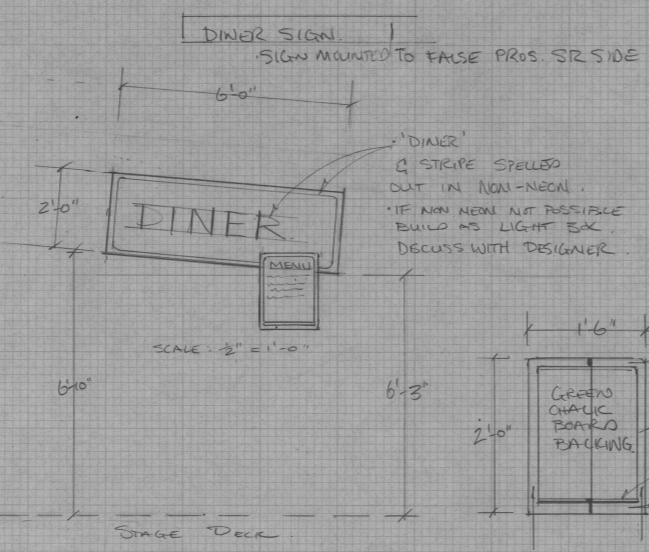 DINER SIGN.
·SIGN MOUNTED TO FALSE PROS. SR SIDE
6'-0"
·'DINER'
& STRIPE SPELLED
OUT IN NON-NEON.
·IF NON NEON NOT POSSIBLE
BUILD AS LIGHT BOX.
DISCUSS WITH DESIGNER.
2'-0"
DINER
MENU
SCALE: ½" = 1'-0"
6'-10"
6'-3"
1'-6"
2'-0"
GREEN
CHALK
BOARD
BACKING.
STAGE DECK.